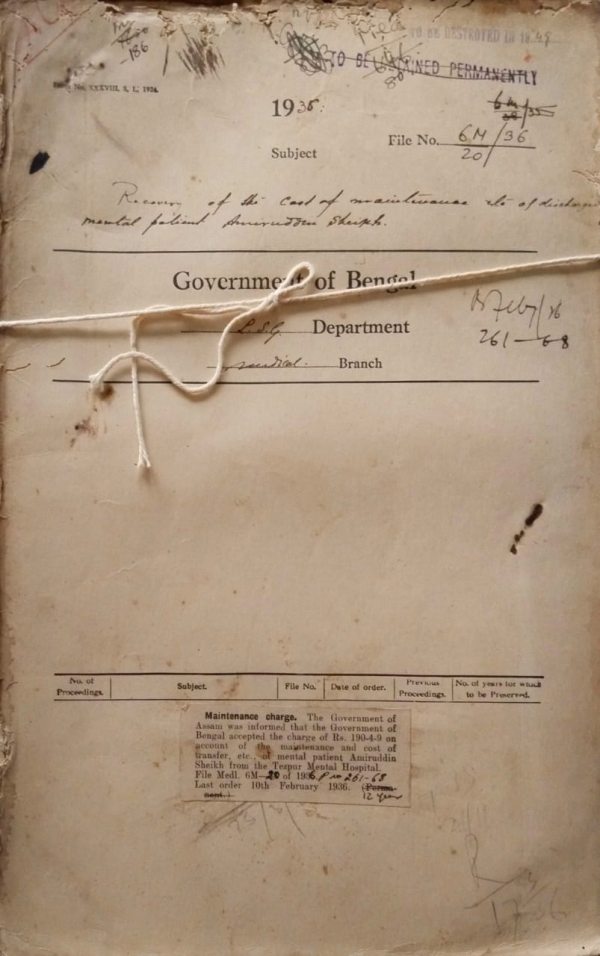 TO BE DESTROYED IN 1948
TO BE RETAINED PERMANENTLY
186
No. XXXVIII, S. I., 1924.
1935.
6M/35
File No. 6M/36
20
Subject
Recovery of the cost of maintenance etc of discharged
mental patient Amiruddin Sheikh.
Government of Bengal
L.S.G. Department
Medical. Branch
Feby/36
261-68
No. of Proceedings.
Subject.
File No.
Date of order.
Previous Proceedings.
No. of years for which to be Preserved.
Maintenance charge. The Government of
Assam was informed that the Government of
Bengal accepted the charge of Rs. 190-4-9 on
account of the maintenance and cost of
transfer, etc., of mental patient Amiruddin
Sheikh from the Tezpur Mental Hospital.
File Medl. 6M-20 of 1936 P no 261-68
Last order 10th February 1936. (Perma-
nent.) 12 year